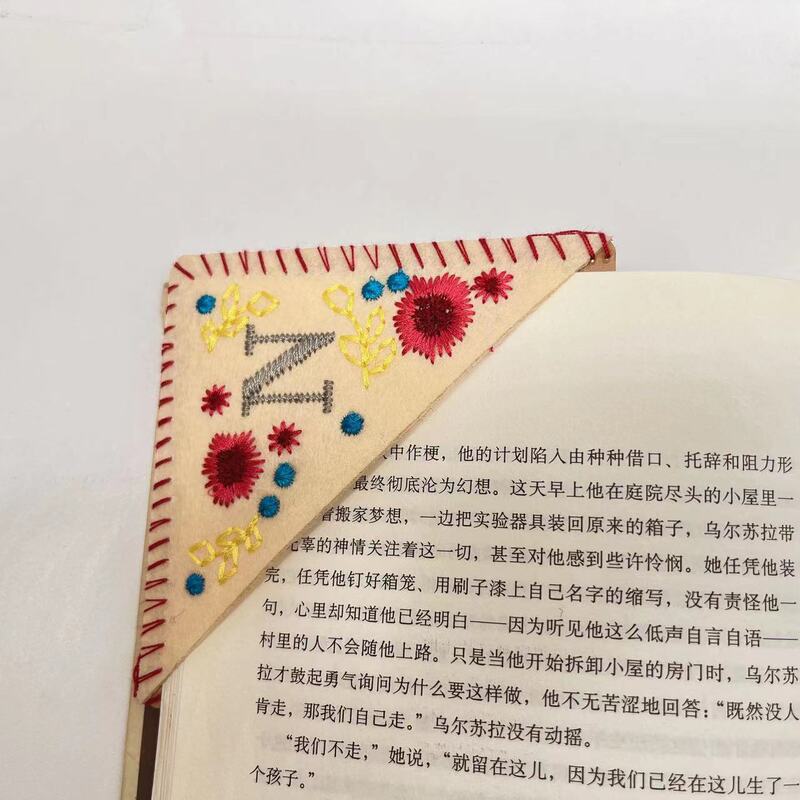 N
中作梗，他的计划陷入由种种借口、托辞和阻力形
最终彻底沦为幻想。这天早上他在庭院尽头的小屋里一
着搬家梦想，一边把实验器具装回原来的箱子，乌尔苏拉带
辜的神情关注着这一切，甚至对他感到些许怜悯。她任凭他装
完，任凭他钉好箱笼、用刷子漆上自己名字的缩写，没有责怪他一
句，心里却知道他已经明白——因为听见他这么低声自言自语——
村里的人不会随他上路。只是当他开始拆卸小屋的房门时，乌尔苏
拉才鼓起勇气询问为什么要这样做，他不无苦涩地回答：“既然没人
肯走，那我们自己走。”乌尔苏拉没有动摇。
“我们不走，”她说，“就留在这儿，因为我们已经在这儿生了一
个孩子。”